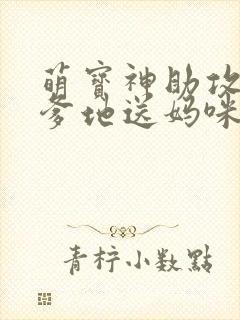 萌寶神助攻
爹地送媽咪
青檸小數點